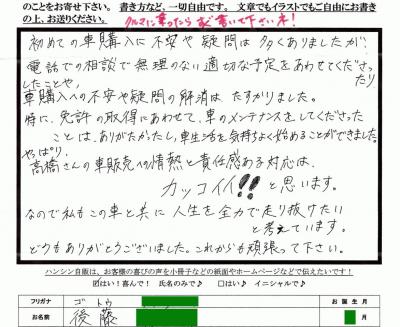 のことをお寄せ下さい。 書き方など、一切自由です。 文章でもイラストでもご自由にお書き
の上、お送りください。
クルマに乗ったらまた書いて下さいネ!
初めての車購入に不安や疑問は多くありましたが、
電話での相談で無理のない適切な予定をあわせてくださっ
たり
したことや、
車購入への不安や疑問の解消は、たすかりました。
特に、免許の取得にあわせて、車のメンテナンスをしてくださった
ことは、ありがたかったし、車生活を気持ちよく始めることができました。
やっぱり、
高橋さんの車販売への情熱と責任感ある対応は、
カッコイイ!!と思います。
なので私もこの車と共に人生を全力で走り抜けたい
と考えています。
どうもありがとうございました。これからも頑張って下さい。
ハンシン自販は、お客様の喜びの声を小冊子などの紙面やホームページなどで伝えたいです!
☑はい!喜んで! 氏名のみで♪ □はい♪ イニシャルで♪
フリガナ ゴトウ お誕生月
お名前 後藤 月